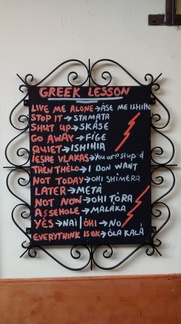 GREEK LESSON
LIVE ME ALONE → ASE ME ISHIHI
STOP IT → STAMATA
SHUT UP → SKASE
GO AWAY → FIGE
QUIET → ISHIHIA
IESHE VLAKAS → You are stupid
THEN THELO → I DON WANT
NOT TODAY → OHI SHIMERA
LATER → META
NOT NOW → OHI TORA
ASSEHOLE → MALAKA
YES → NAI / OHI → NO
EVERYTHINK IS OK → OLA KALÁ